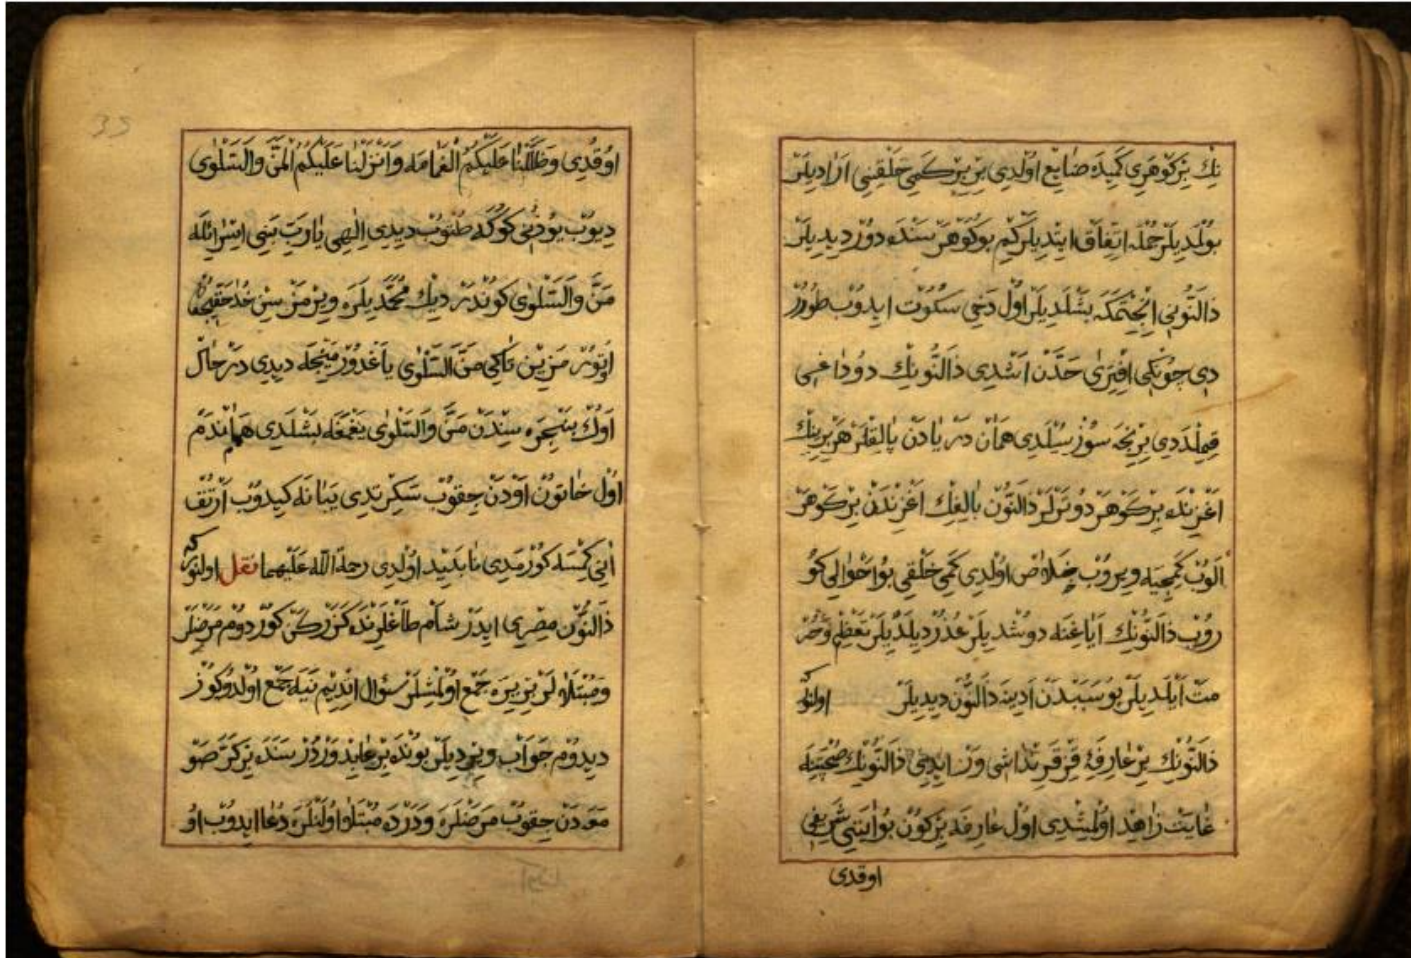 نِكْ بِرْ كَوْهَرِى كَمِيدَه ضَايِعْ اُولْدِى بِرْ بِرْ كَمِى خَلْقِنِى اَرَادِيلَرْ
بُولْمَدِيلَرْ جُمْلَه اِتِّفَاقْ اِيتْدِيلَرْ كِيمْ بُو كَوْهَرْ سَنْدَه دُورْ دِيدِيلَرْ
ذَالنُّونِى اِنْجِتْمَكَه بَشْلَدِيلَرْ اُولْ دَخِى سُكُوتْ اِيدُوبْ طُورُرْ
دِى چُونْكِى اِفْتِرَى حَدَّنْ اَشْدِى ذَالنُّونِكْ دُودَاغِى
قِمِلْدَدِى بِرْنِجَه سُوزْ سُيْلَدِى هَمَانْ دَرْيَادَنْ بَالِقْلَرْ هَرْ بِرِينِكْ
اَغْزِنْدَه بِرْ كَوْهَرْ دُوتَرْلَرْ ذَالنُّونْ بَالِغِكْ اَغْزِنْدَنْ بِرْ كَوْهَرْ
اَلُوبْ كَمِجِيَه وِيرُوبْ خَلَاصْ اُولْدِى كَمِى خَلْقِى بُو اَحْوَالِى كُو
رُوبْ ذَالنُّونِكْ اَيَاغِنَه دُوشْدِيلَرْ عُذُرْ دِيلَدِيلَرْ تَعْظِيمْ وَحُرْ
مَتْ اَيْلَدِيلَرْ بُو سَبَبْدَنْ اَدِينَه ذَالنُّونْ دِيدِيلَرْ
ذَالنُّونِكْ بِرْ عَارِفَهْ قِزْ قَرِنْدَاشِى وَرْ اِيدِى ذَالنُّونِكْ صُحْبَتِنَه
غَايَتْ زَاهِدْ اُولْمِشْدِى اُولْ عَارِفَه بِرْ كُونْ بُو اَيَتِى شَرِيفِى
اوقدى
35
اُوقُدِى وَظَلَّلْنَا عَلَيْكُمُ الْغَمَامَه وَاَنْزَلْنَا عَلَيْكُمُ الْمَنَّ وَالسَّلْوٰى
دِيُوبْ يُوزُنِى كُوكَه طُتُوبْ دِيدِى اِلٰهِى يَا رَبْ بَنِى اِسْرَائِلَه
مَنَّ وَالسَّلْوٰى كُونْدَرْدِيكْ مُحَمَّدِيلَرَه وِيرْمَزْ سِنْ
اُتُورْمَزِينْ تَاكِى مَنَّ السَّلْوٰى يَاغْدُورْمَيِنْجَه دِيدِى دَرْحَالْ
اَولْ پَنْجِرَه سِنْدَنْ مَنَّ وَالسَّلْوٰى يَغْمَغَه بَشْلَدِى هَمَانْدَمْ
اُولْ خَاتُونْ اَوْدَنْ چِقُوبْ سَكِرْتْدِى يَبَانَه كِيدُوبْ اَرْتُقْ
اَنِى كِمْسَه كُورْمَدِى نَابَدِيدْ اُولْدِى رحمة الله عليهما نقل اولنور كه
ذَالنُّونْ مِصْرِى اِيدَرْ شَامْ طَاغْلَرِنْدَه كَزَرْكَنْ كُورْدُومْ مَرِضْلَرْ
وَمُبْتَلَالَرْ بِرْ يِرَه جَمْعْ اُولْمِشْلَرْ سُؤَالْ اِتْدِيمْ نَيَه جَمْعْ اُولْدُوكُوزْ
دِيدُومْ جَوَابْ وِيرْدِيلَرْ بُونْدَه بِرْ عَابِدْ وَرْدُرْ سَنَدَه بِرْ كَرَّه صَوْ
مَعَه دَنْ چِقُوبْ مَرِضْلَرَه وَدَرْدَه مُبْتَلَا اُولَنْلَرَه دُعَا اِيدُوبْ اُو